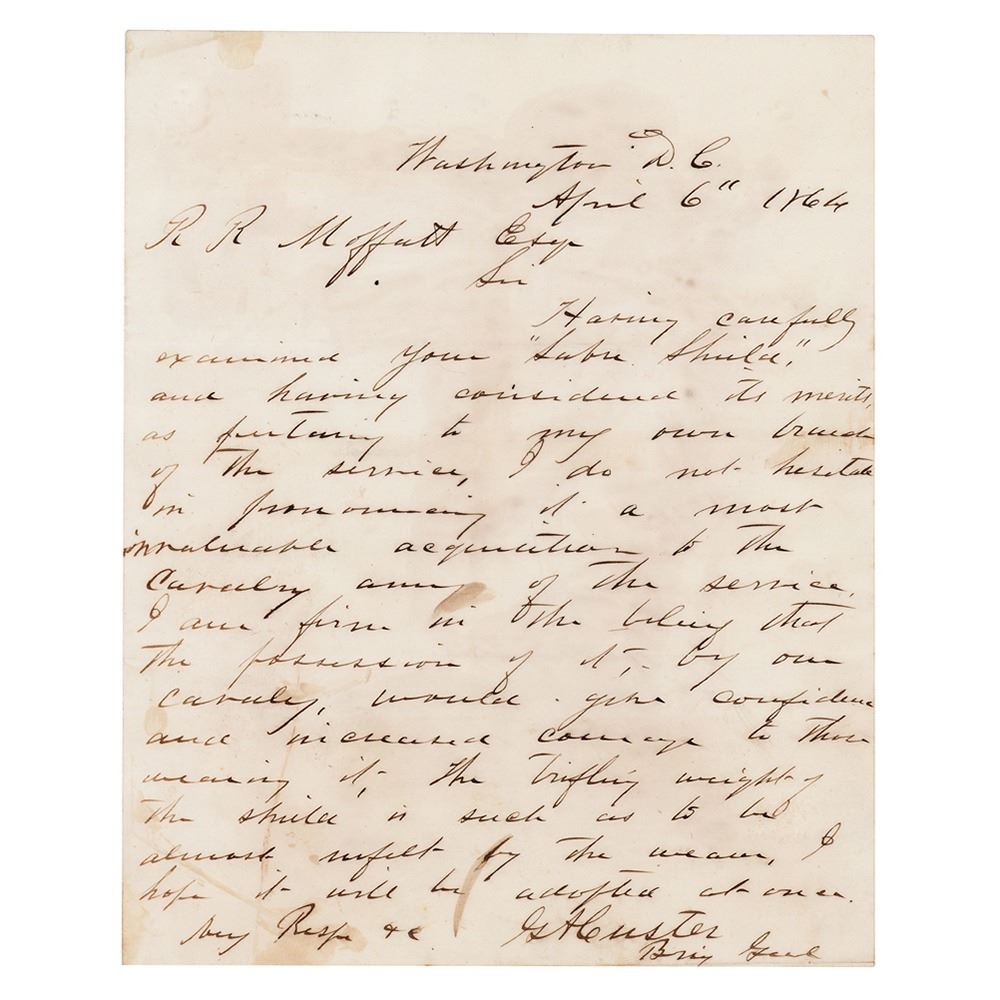 Washington D. C.
April 6" 1864
R R Moffatt Esqr
Sir
Having carefully
examined your "Sabre Shield",
and having considered its merits,
as pertaining to my own branch
of the service, I do not hesitate
in pronouncing it a most
invaluable acquisition to the
Cavalry arm of the service.
I am firm in the belief that
the possession of it, by our
cavalry, would give confidence
and increased courage to those
wearing it, the trifling weight of
the shield is such as to be
almost unfelt by the wearer, I
hope it will be adopted at once.
Very Resp &c GACuster
Brig Genl